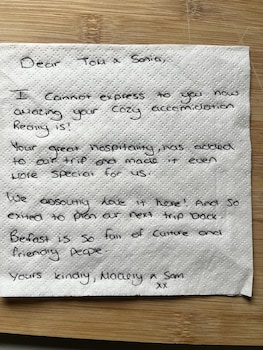 Dear Tom & Sonia,
I Cannot express to you how
amazing your cozy accomidation
Really is!
Your great hospitality, has added
to our trip and made it even
more special for us.
We absoutly love it here! And so
exited to plan our next trip back.
Belfast is so full of culture and
friendly people.
Yours kindly, & Sam
xx